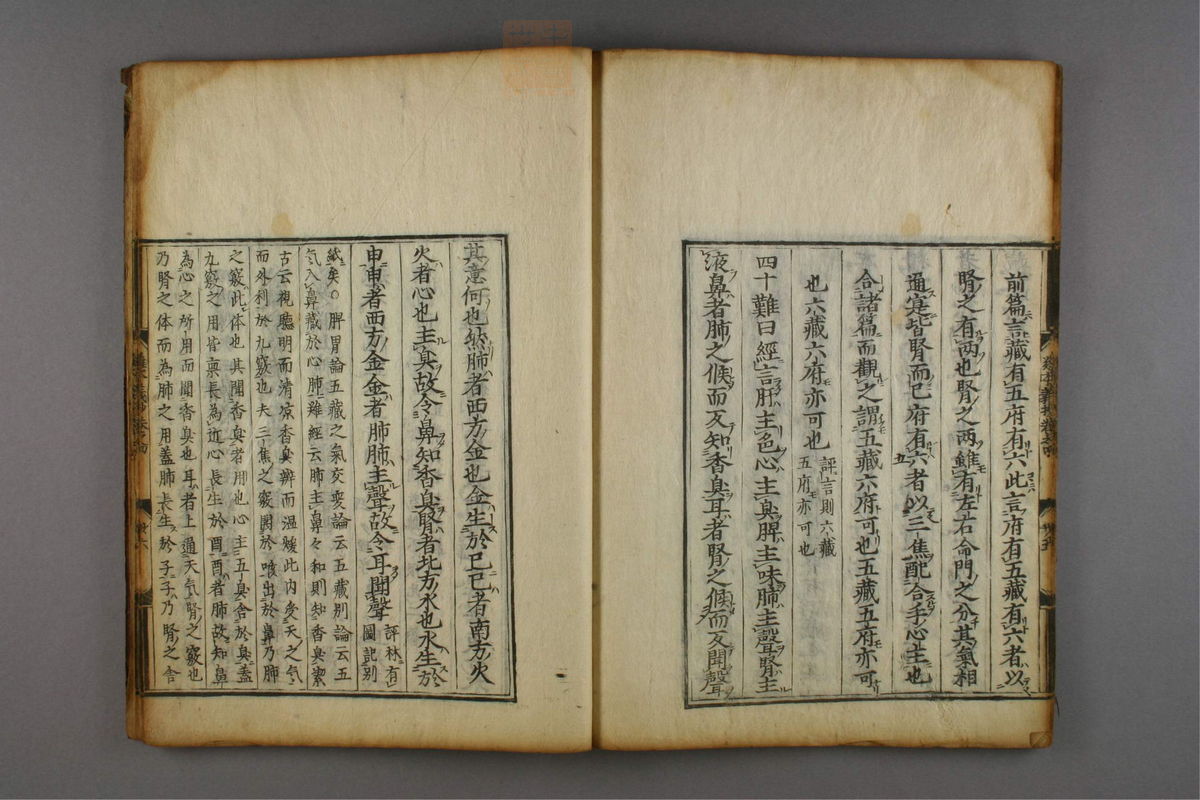 前篇言藏有五府有六此言府有五藏有六者以
腎之有两也腎之两雖有左右命門之分其氣相
通寔皆腎而已府有六者以三焦配合手心主也
合諸篇而觀之謂五藏六府可也五藏五府亦可
也六藏六府亦可也
評言則六藏
五府亦可也
四十難曰經言肝主色心主臭脾主味肺主聲腎主
液鼻者肺之候而反知香臭耳者腎之候而反聞聲
其意何也然肺者西方金也金生於巳巳者南方火
火者心也主臭故令鼻知香臭腎者北方水也水生於
申申者西方金金者肺肺主聲故令耳聞聲
評林有
圖記別
紙矣○脾胃論五藏之氣交変論云五藏別論云五
气入鼻藏於心肺難經云肺主鼻々和則知香臭潔
古云視聽明而清凉香臭辨而温煖此内受天之气
而外利於九竅也夫三焦之竅開於喉出於鼻乃肺
之竅此体也其聞香臭者用也心主五臭舍於臭盖
九竅之用皆禀長為近心長生於酉酉者肺故知鼻
為心之所用而聞香臭也耳者上通天气腎之竅也
乃腎之体而為肺之用盖肺長生於子子乃腎之舍